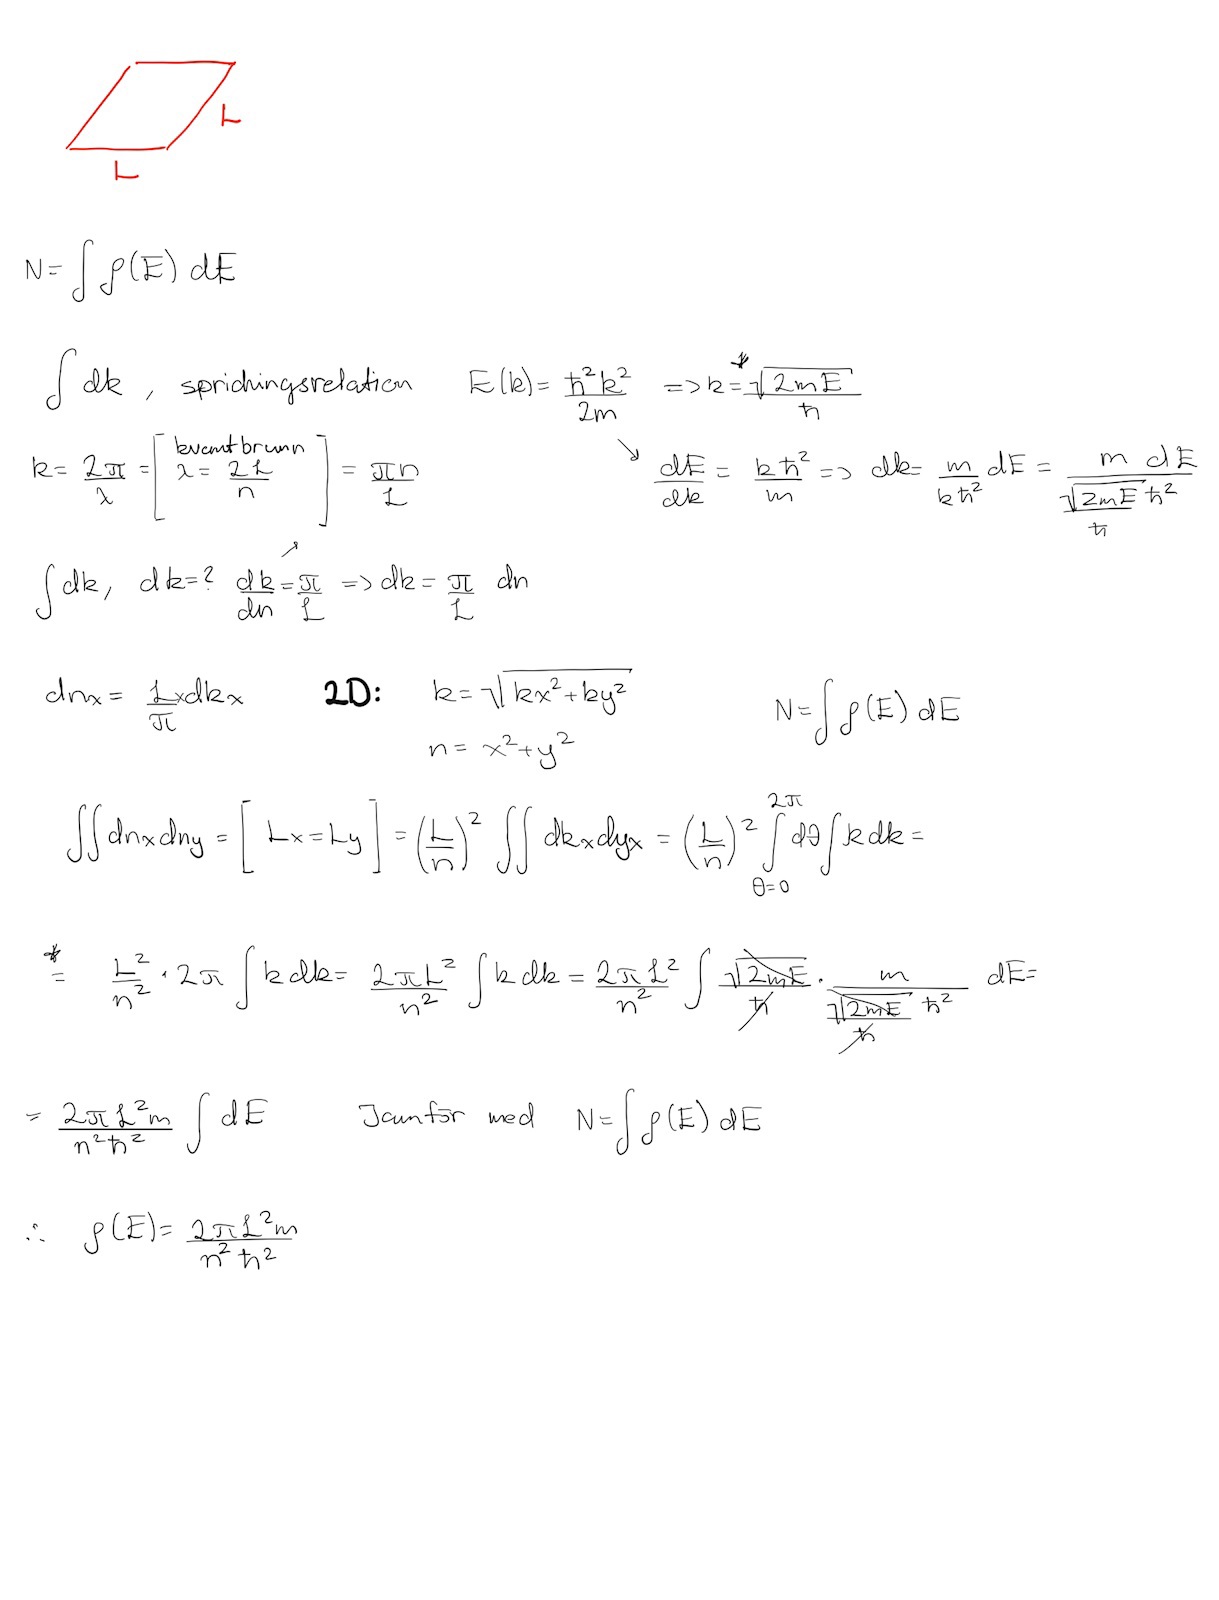 L
L
N = ∫ ρ(E) dE
∫ dk , spridningsrelation E(k) = ħ²k²/2m => k =* √(2mE)/ħ
k = 2π/λ = [ kvantbrunn λ = 2L/n ] = πn/L
↘ dE/dk = kħ²/m => dk = m/(kħ²) dE = m dE/((√(2mE)/ħ) ħ²)
∫ dk, dk = ? dk/dn = π/L => dk = π/L dn
dnx = Lx/π dkx 2D: k = √(kx² + ky²) N = ∫ ρ(E) dE
n = x² + y²
∬ dnx dny = [ Lx = Ly ] = (L/n)² ∬ dkx dyx = (L/n)² ∫_{θ=0}^{2π} dθ ∫ k dk =
*= L²/n² · 2π ∫ k dk = 2πL²/n² ∫ k dk = 2πL²/n² ∫ √(2mE)/ħ · m/((√(2mE)/ħ) ħ²) dE =
= 2πL²m/(n²ħ²) ∫ dE Jämför med N = ∫ ρ(E) dE
∴ ρ(E) = 2πL²m/(n²ħ²)